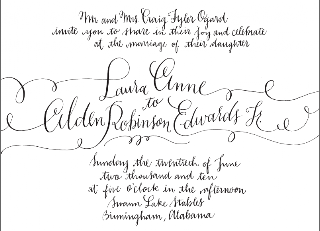 Mr and Mrs Craig Tyler Ogard
invite you to share in their joy and celebrate
at the marriage of their daughter
Laura Anne
to
Alden Robinson Edwards Jr
Sunday the twentieth of June
two thousand and ten
at five o'clock in the afternoon
Swann Lake Stables
Birmingham, Alabama